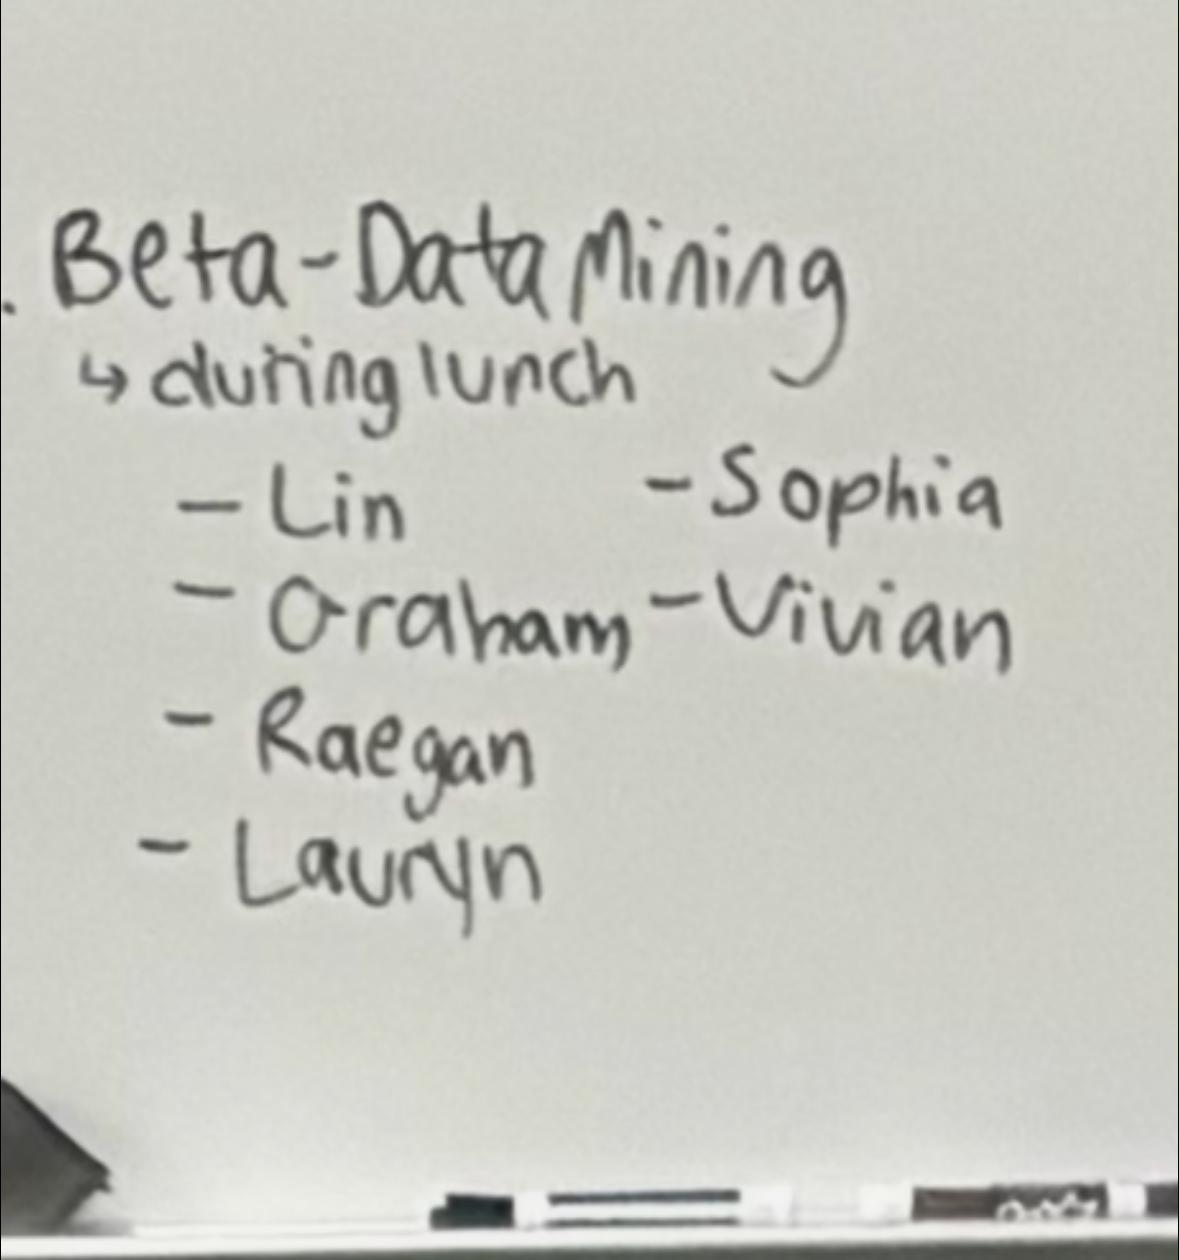 . Beta - Data Mining
↳ during lunch
- Lin
- Oraham
- Raegan
- Lauryn
- Sophia
- Vivian